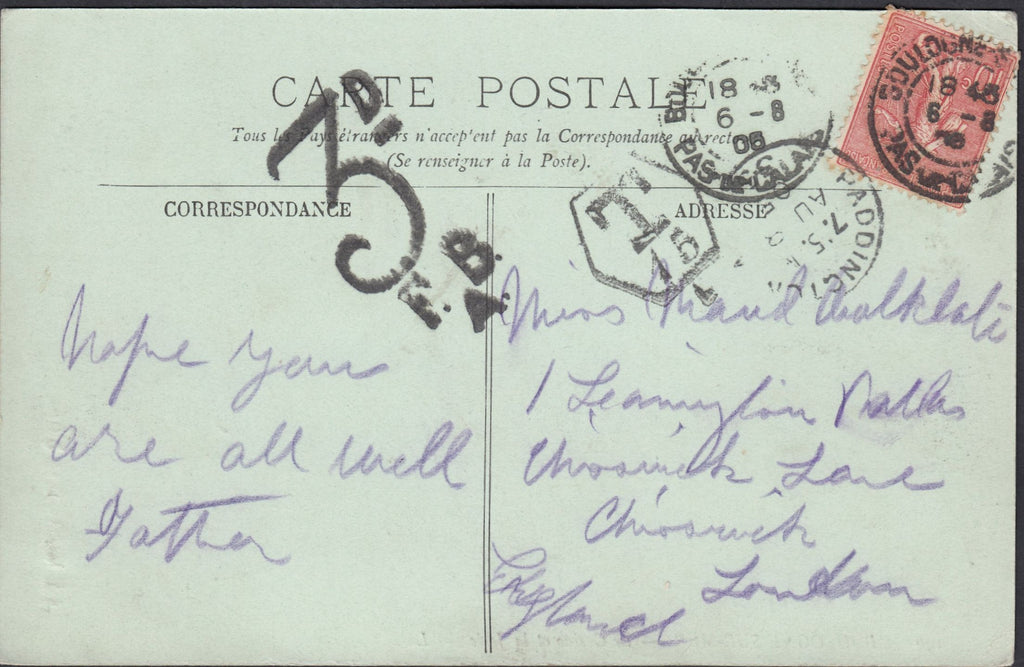 CARTE POSTALE
Tous les Pays étrangers n'accep'ent pas la Correspondance au recto
(Se renseigner à la Poste).
CORRESPONDANCE
ADRESSE
3D.
F.B.
A.
T
15
BOULOGNE
18
6 - 8
06
PAS-DE-CALAIS
BOULOGNE
18
6 - 8
PAS
PADDINGTON
7.5.
AU
POSTES
10
Hope you
are all well
Father
Miss Maud
1 Leamington Vallas
Chiswick Lane
Chiswick
London
England